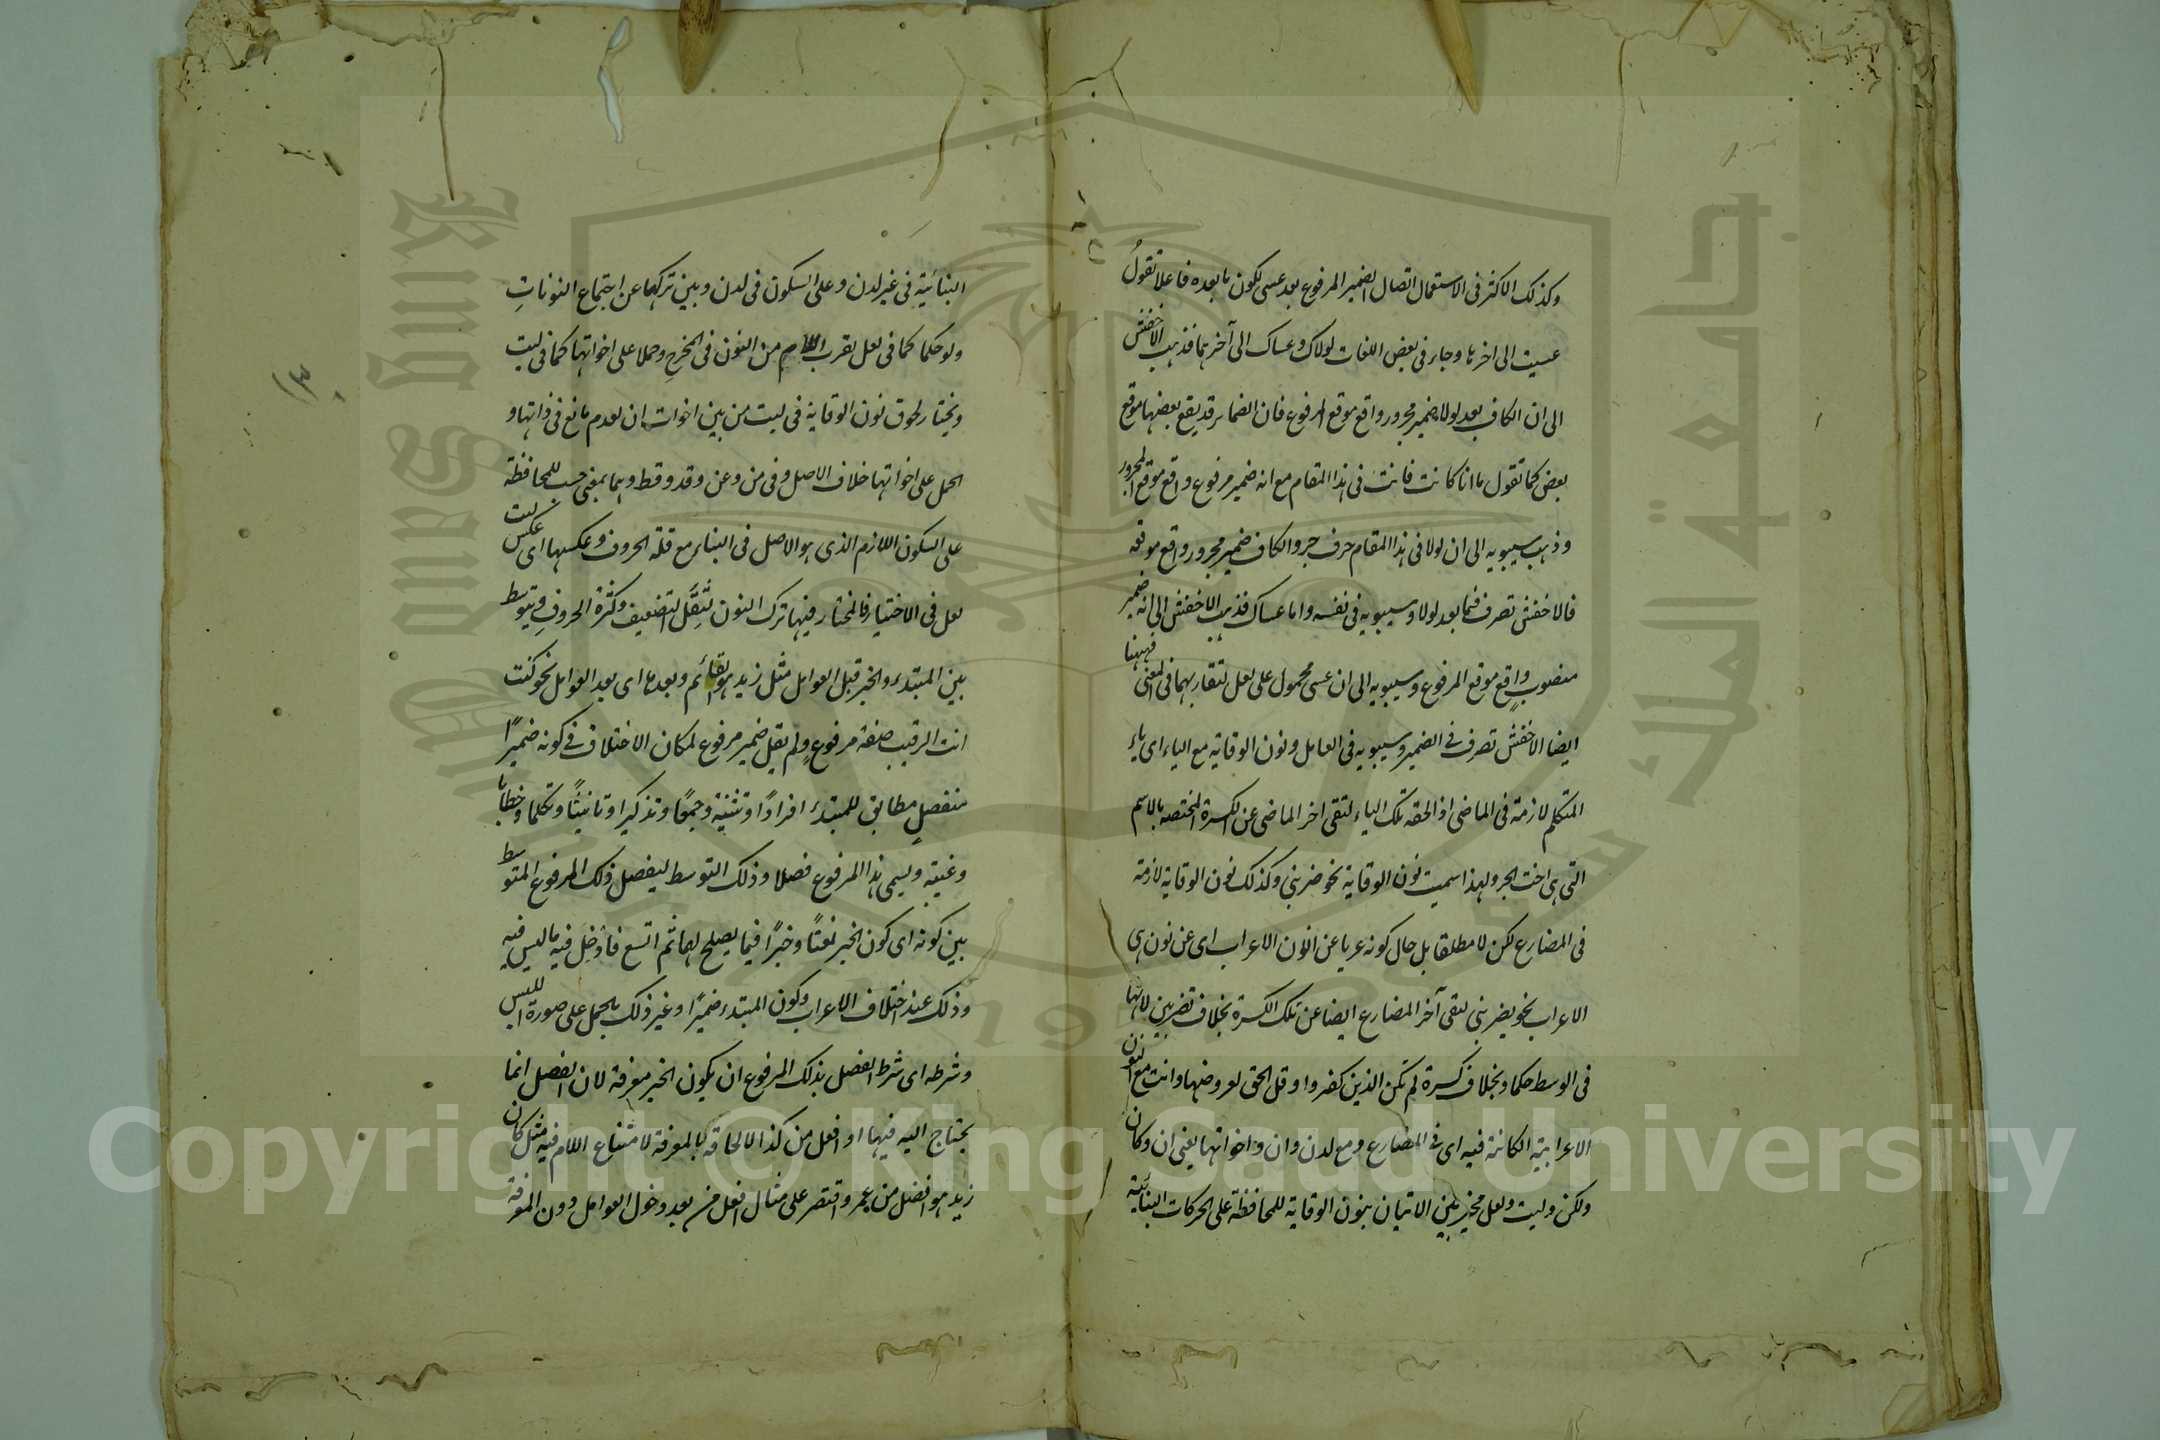 وكذلك الاكثر فى الاستعمال اتصال الضمير المرفوع بعد عسى لكون ما بعده فاعلا تقول
عسيت الى اخرها وجاء فى بعض اللغات لولاك وعساك الى آخرهما فذهب الاخفش
الى ان الكاف بعد لولا ضمير مجرور واقع موقع المرفوع فان الضمائر قد يقع بعضها موقع
بعض كما تقول ما انا كانت فانت فى هذا المقام مع انه ضمير مرفوع واقع موقع المجرور
وذهب سيبويه الى ان لولا فى هذا المقام حرف جر والكاف ضمير مجرور واقع موقعه
فالاخفش تصرف فيما بعد لولا وسيبويه فى نفسه واما عساك فذهب الاخفش الى انه ضمير
منصوب واقع موقع المرفوع وسيبويه الى ان عسى محمول على لعل لتقاربهما فى المعنى فههنا
ايضا الاخفش تصرف فى الضمير وسيبويه فى العامل ونون الوقاية مع الياء اى ياء
المتكلم لازمة فى الماضى اذا لحقه تلك الياء لتقى اخر الماضى عن الكسرة المختصه بالاسم
التى هى اخت الجر ولهذا سميت نون الوقاية نحو ضربنى وكذلك نون الوقاية لازمة
فى المضارع لكن لا مطلقا بل حال كونه عريا عن نون الاعراب اى عن نون هى
الاعراب نحو يضربنى لتقى آخر المضارع ايضا عن تلك الكسرة بخلاف تضربين لانها
فى الوسط حكما وبخلاف كسرة لم تكن الذين كفروا وقل الحق لعروضها وانت مع النون
الاعرابية الكائنة فيه اى فى المضارع ومع لدن وان واخواتها يعنى ان وكان
ولكن وليت ولعل مخير بين الاتيان بنون الوقاية للمحافظة على الحركات البنائية
البنائية فى غير لدن وعلى السكون فى لدن وبين تركها عن اجتماع النونات
ولو حكما كما فى لعل لقرب اللام من النون فى المخرج وحملا على اخواتها كما فى ليت
ويختار لحوق نون الوقاية فى ليت من بين اخوات ان لعدم مانع فى ذاتها و
الحمل على اخواتها خلاف الاصل وفى من وعن وقد وقط وهما بمعنى حسب للمحافظة
على السكون اللازم الذى هو الاصل فى البناء مع قلة الحروف وعكسها اى عكس ليت
لعل فى الاختيار فالمختار فيها ترك النون لثقل التضعيف وكثرة الحروف ويتوسط
بين المبتدء والخبر قبل العوامل مثل زيد هو القائم وبعدها اى بعد العوامل نحو كنت
انت الرقيب صيغة مرفوع ولم يقل ضمير مرفوع لمكان الاختلاف فى كونه ضميرًا
منفصل مطابق للمبتدء افرادًا وتثنية وجمعًا وتذكيرا وتانيثًا وتكلما وخطابا
وغيبة ويسمى هذا المرفوع فصلا وذلك التوسط ليفصل ذلك المرفوع المتوسط
بين كونه اى كون الخبر نعتًا وخبرًا فيما يصلح لهما ثم اتسع فادخل فيه ما ليس فيه
وذلك عند اختلاف الاعراب وكون المبتدء ضميرًا وغير ذلك بالحمل على صورة اللبس
وشرطه اى شرط الفصل بذلك المرفوع ان يكون الخبر معرفة لان الفصل انما
يحتاج اليه فيها او افعل من كذا لالحاقه بالمعرفة لامتناع اللام فيه مثل كان
زيد هو افضل من عمرو واقتصر على مثال افعل من بعد دخول العوامل دون المعرفة
Copyright © King Saud University